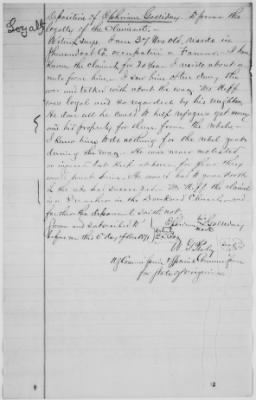 Loyalty
Deposition of Ephraim Golliday. To prove the
loyalty of the Claimant.
Witness Says I am 37 yrs old, reside in
Shenandoah Co. occupation a Farmer. I have
known the claimant for 20 years I reside about a
mile from him. I saw him often during the
war and talked with about the war. Mr Neff
was loyal and so regarded by his neighbors
He done all he could to help refugees get away
and his property for them from the rebels.
I knew him to do nothing for the rebels
during the war. He was never molested
or injured but kept at home for fear they
would him. He could not gone South
if the rebs had succeeded. Mr Neff the claimant
is a Preacher in the Dunkard Church and
further the deponent saith not.
Sworn and subscribed to Ephraim his Golliday
before me this 6 day of 1871 mark
Commissioner of Claims Commission
for State of Virginia